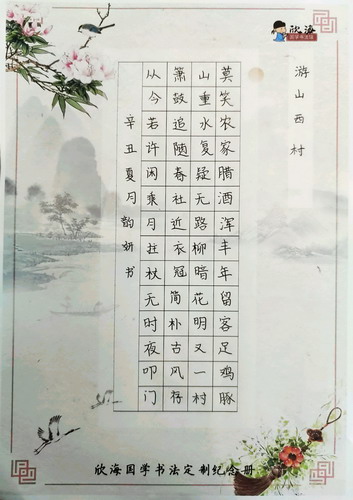 欣海
国学书法馆
游山西村
莫笑农家腊酒浑丰年留客足鸡豚
山重水复疑无路柳暗花明又一村
箫鼓追随春社近衣冠简朴古风存
从今若许闲乘月拄杖无时夜叩门
辛丑夏月韵妍书
欣海国学书法定制纪念册